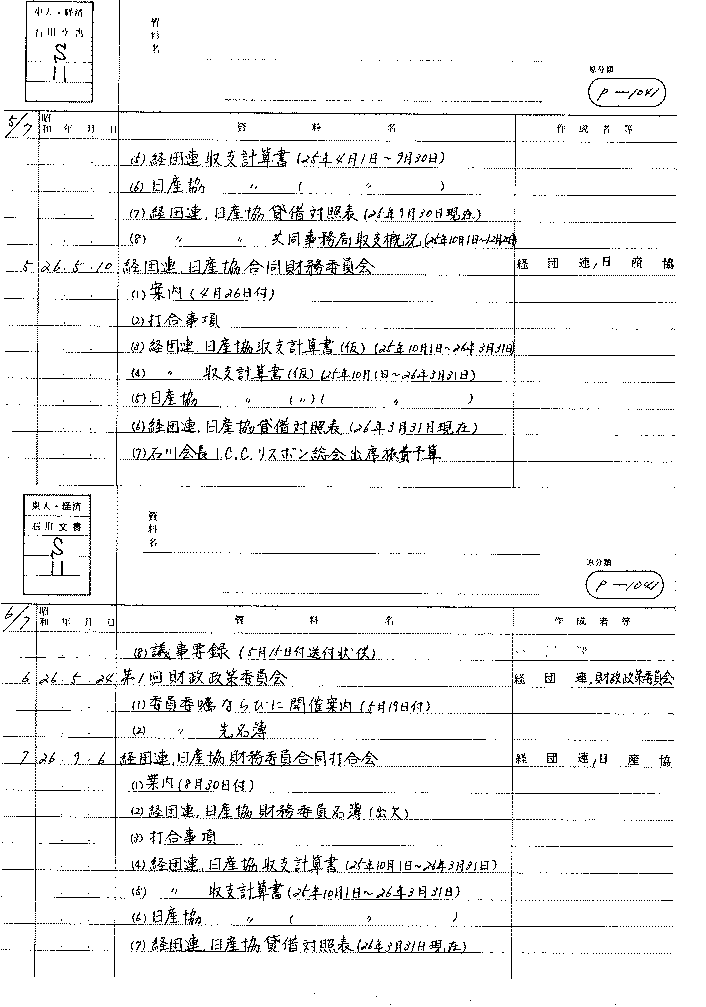 東大・経済
石川文書
S-1
資料名
原分類
P-1041
5/7 昭和 年 月 日 資料名 作成者等
(5) 経団連収支計算書 (25年4月1日～9月30日)
(6) 日産協 〃 ( 〃 )
(7) 経団連, 日産協貸借対照表 (25年9月30日現在)
(8) 〃 〃 共同事務局収支概況 (25年10月1日～12月
5 26.5.10 経団連, 日産協合同財務委員会 経団連, 日産協
(1) 案内 (4月26日付)
(2) 打合事項
(3) 経団連, 日産協収支計算書 (仮) (25年10月1日～26年3月31日
(4) 〃 収支計算書 (仮) (25年10月1日～26年3月31日)
(5) 日産協 〃 (〃) ( 〃 )
(6) 経団連, 日産協貸借対照表 (26年3月31日現在)
(7) 石川会長 I.C.C. リスボン総会出席旅費予算
東大・経済
石川文書
S-1
資料名
原分類
P-1041
6/7 昭和 年 月 日 資料名 作成者等
(8) 議事要録 (5月15日付送付状供)
6 26.5.24 第1回財政政策委員会 経団連, 財政政策委員会
(1) 委員委嘱ならびに開催案内 (5月19日付)
(2) 〃 先名簿
7 26.9.6 経団連, 日産協財務委員合同打合会 経団連, 日産協
(1) 案内 (8月30日付)
(2) 経団連, 日産協財務委員名簿 (出欠)
(3) 打合事項
(4) 経団連, 日産協収支計算書 (25年10月1日～26年3月31日)
(5) 〃 収支計算書 (25年10月1日～26年3月31日)
(6) 日産協 〃 ( 〃 )
(7) 経団連, 日産協貸借対照表 (26年3月31日現在)